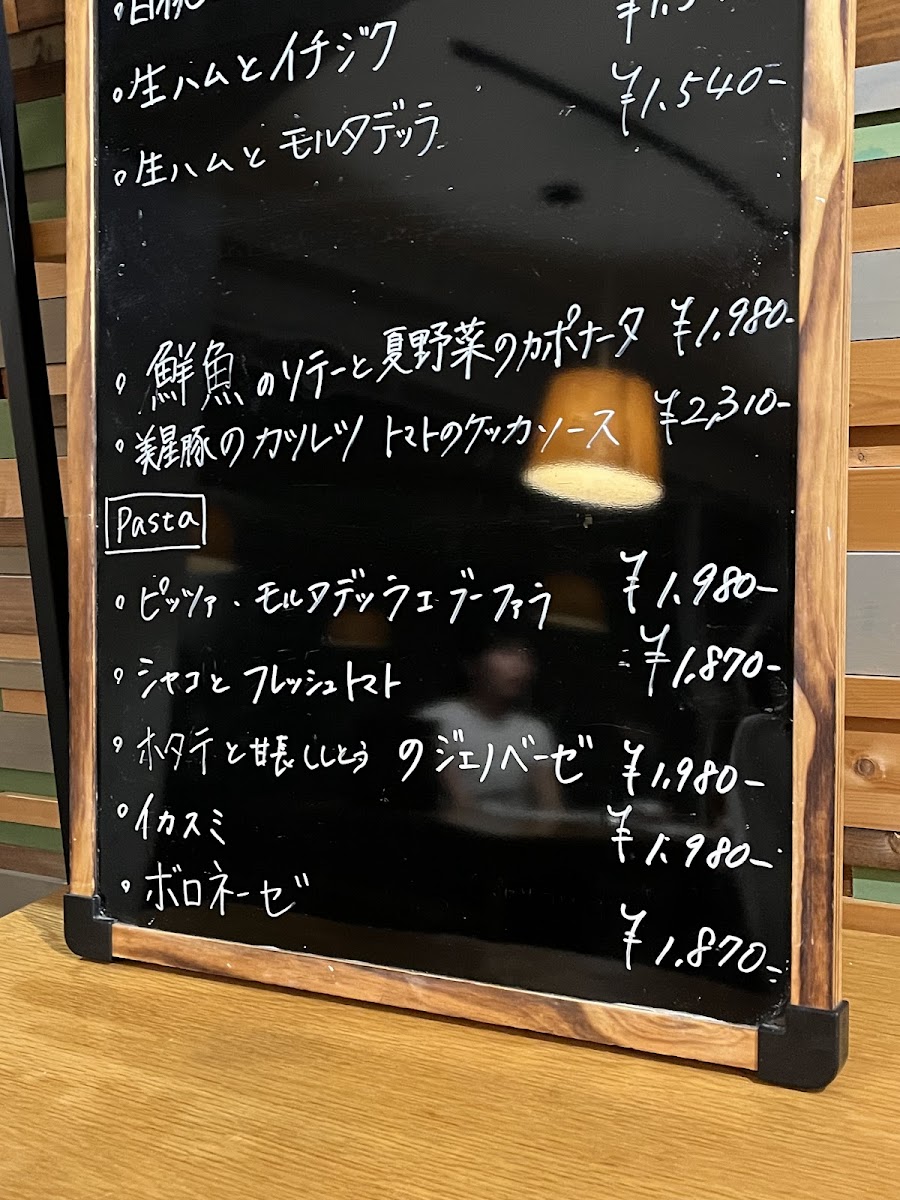 。生ハムとイチジク
¥1.540-
。生ハムと モルタデッラ
。鮮魚のソテーと夏野菜のカポナータ ¥1.980-
。美星豚のカツレツ トマトのケッカソース ¥2,310-
Pasta
。ピッツァ・モルタデッラ エ ブーファラ ¥1.980-
。シャコと フレッシュトマト ¥1.870-
。ホタテと甘長ししとう のジェノベーゼ ¥1.980-
。イカスミ ¥1.980-
。ボロネーゼ ¥1.870-